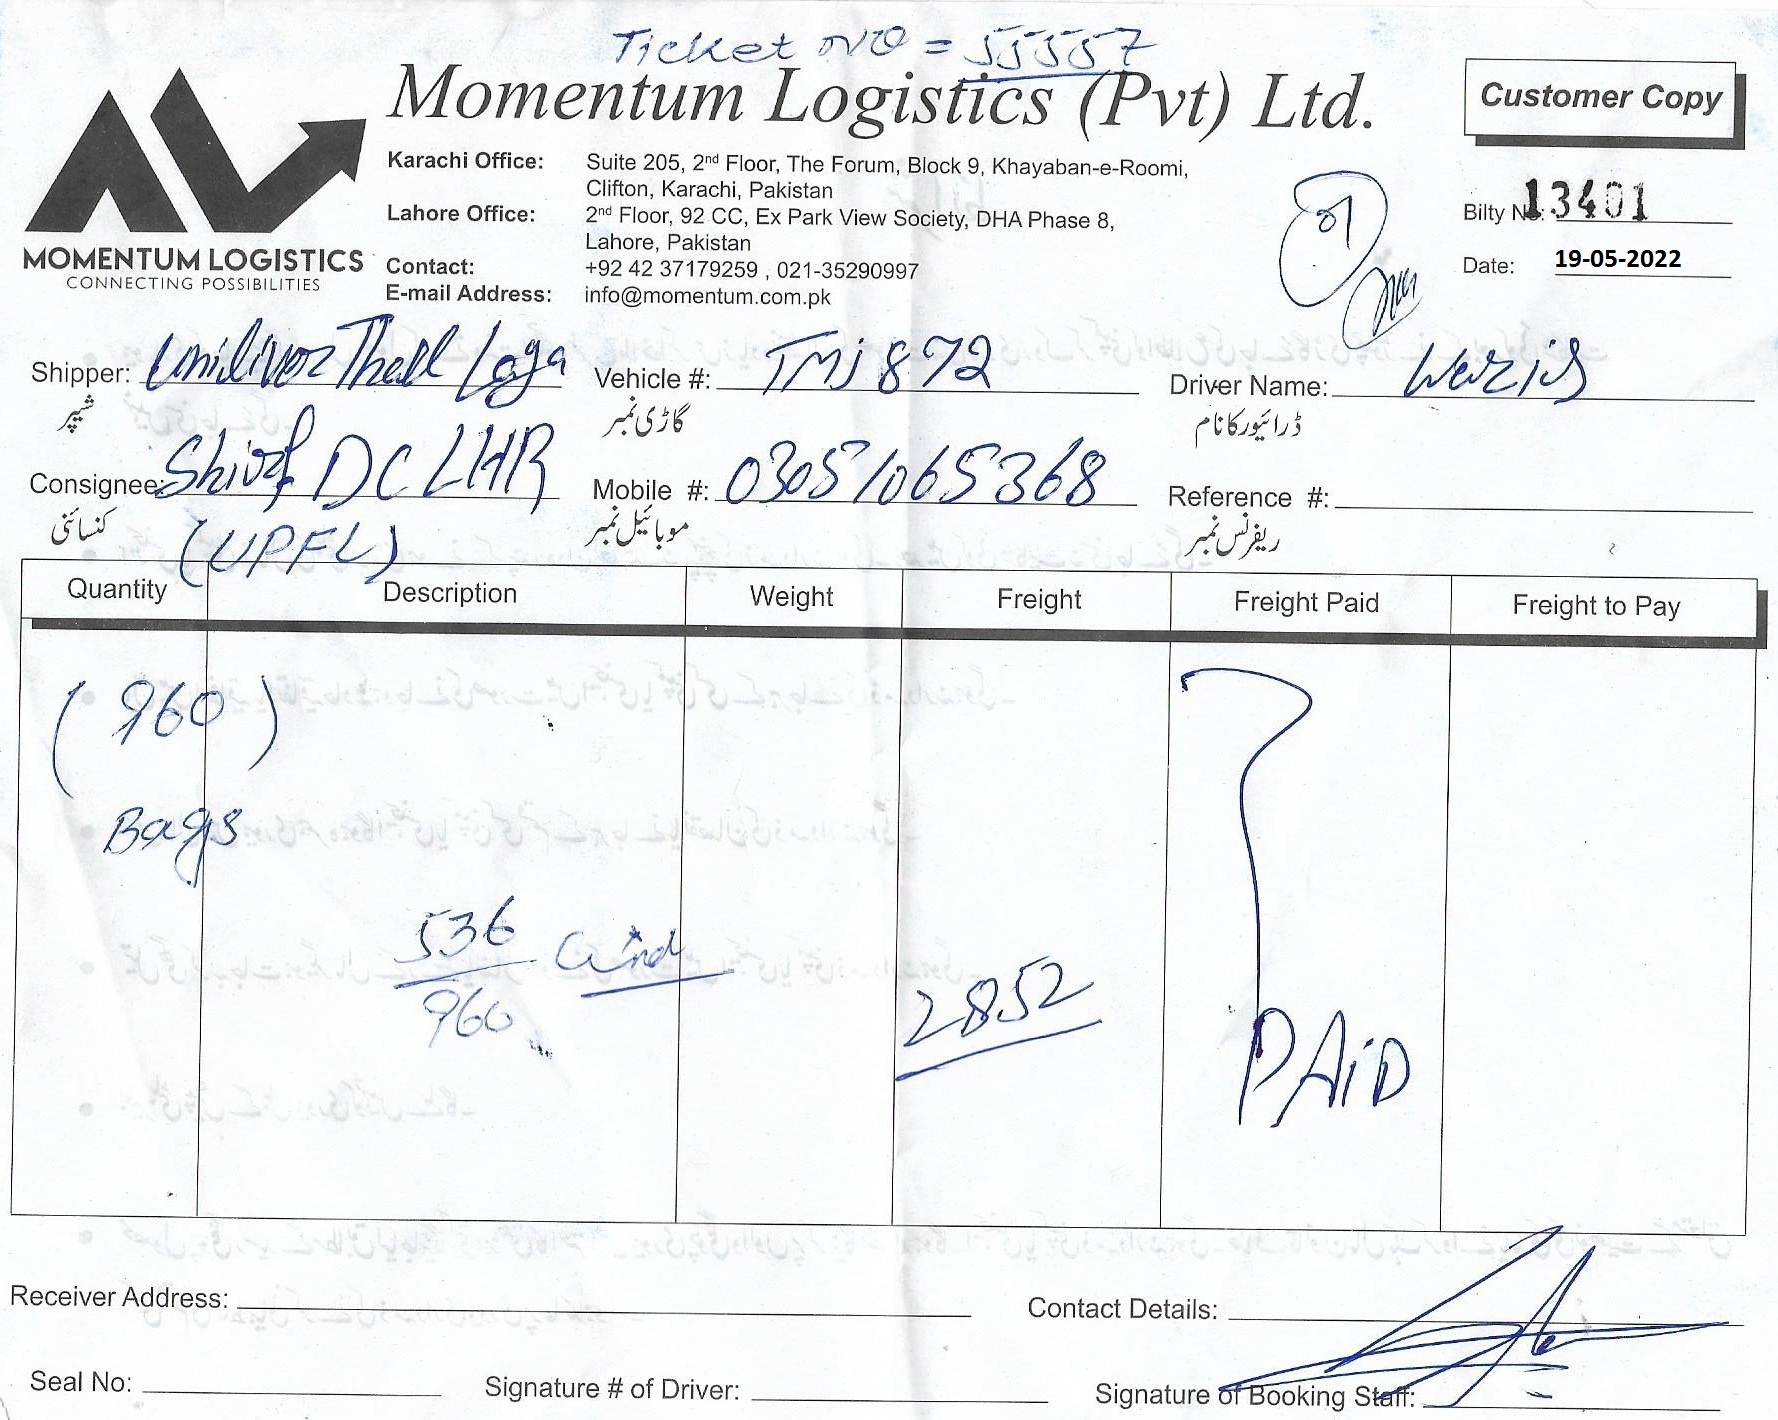 Ticket NO = 55557
Momentum Logistics (Pvt) Ltd.
Customer Copy
MOMENTUM LOGISTICS
CONNECTING POSSIBILITIES
Karachi Office: Suite 205, 2nd Floor, The Forum, Block 9, Khayaban-e-Roomi,
Clifton, Karachi, Pakistan
Lahore Office: 2nd Floor, 92 CC, Ex Park View Society, DHA Phase 8,
Lahore, Pakistan
Contact: +92 42 37179259 , 021-35290997
E-mail Address: info@momentum.com.pk
Bilty No: 13401
Date: 19-05-2022
Shipper: Vehicle #: TMJ 872 Driver Name:
شیپر گاڑی نمبر ڈرائیور کا نام
Consignee: DC LHR Mobile #: 03051065368 Reference #:
(UPFL)
کنسائنی موبائیل نمبر ریفرنس نمبر
Quantity Description Weight Freight Freight Paid Freight to Pay
(960)
Bags
536
960
2852
PAiD
Receiver Address: Contact Details:
Seal No: Signature # of Driver: Signature of Booking Staff: